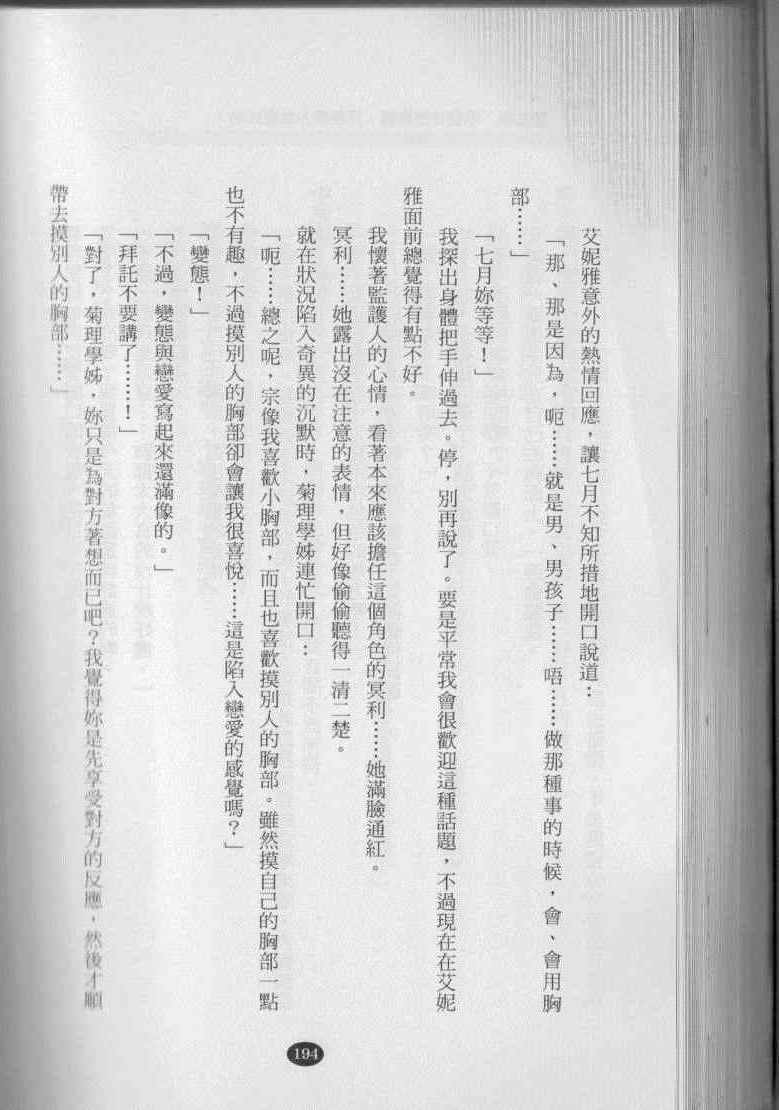 艾妮雅意外的熱情回應，讓七月不知所措地開口說道：
「那、那是因為，呃……就是男、男孩子……唔……做那種事的時候，會、會用胸
部……」
「七月妳等等！」
我探出身體把手伸過去。停，別再說了。要是平常我會很歡迎這種話題，不過現在在艾妮
雅面前總覺得有點不好。
我懷著監護人的心情，看著本來應該擔任這個角色的冥利……她滿臉通紅。
冥利……她露出沒在注意的表情，但好像偷偷聽得一清二楚。
就在狀況陷入奇異的沉默時，菊理學姊連忙開口：
「呃……總之呢，宗像我喜歡小胸部，而且也喜歡摸別人的胸部。雖然摸自己的胸部一點
也不有趣，不過摸別人的胸部卻會讓我很喜悅……這是陷入戀愛的感覺嗎？」
「變態！」
「不過，變態與戀愛寫起來還滿像的。」
「拜託不要講了……！」
「對了，菊理學姊，妳只是為對方著想而已吧？我覺得妳是先享受對方的反應，然後才順
帶去摸別人的胸部……」
194